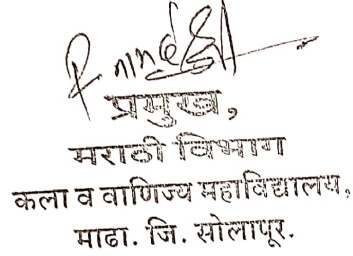 प्रमुख,
मराठी विभाग
कला व वाणिज्य महाविद्यालय,
माढा. जि. सोलापूर.